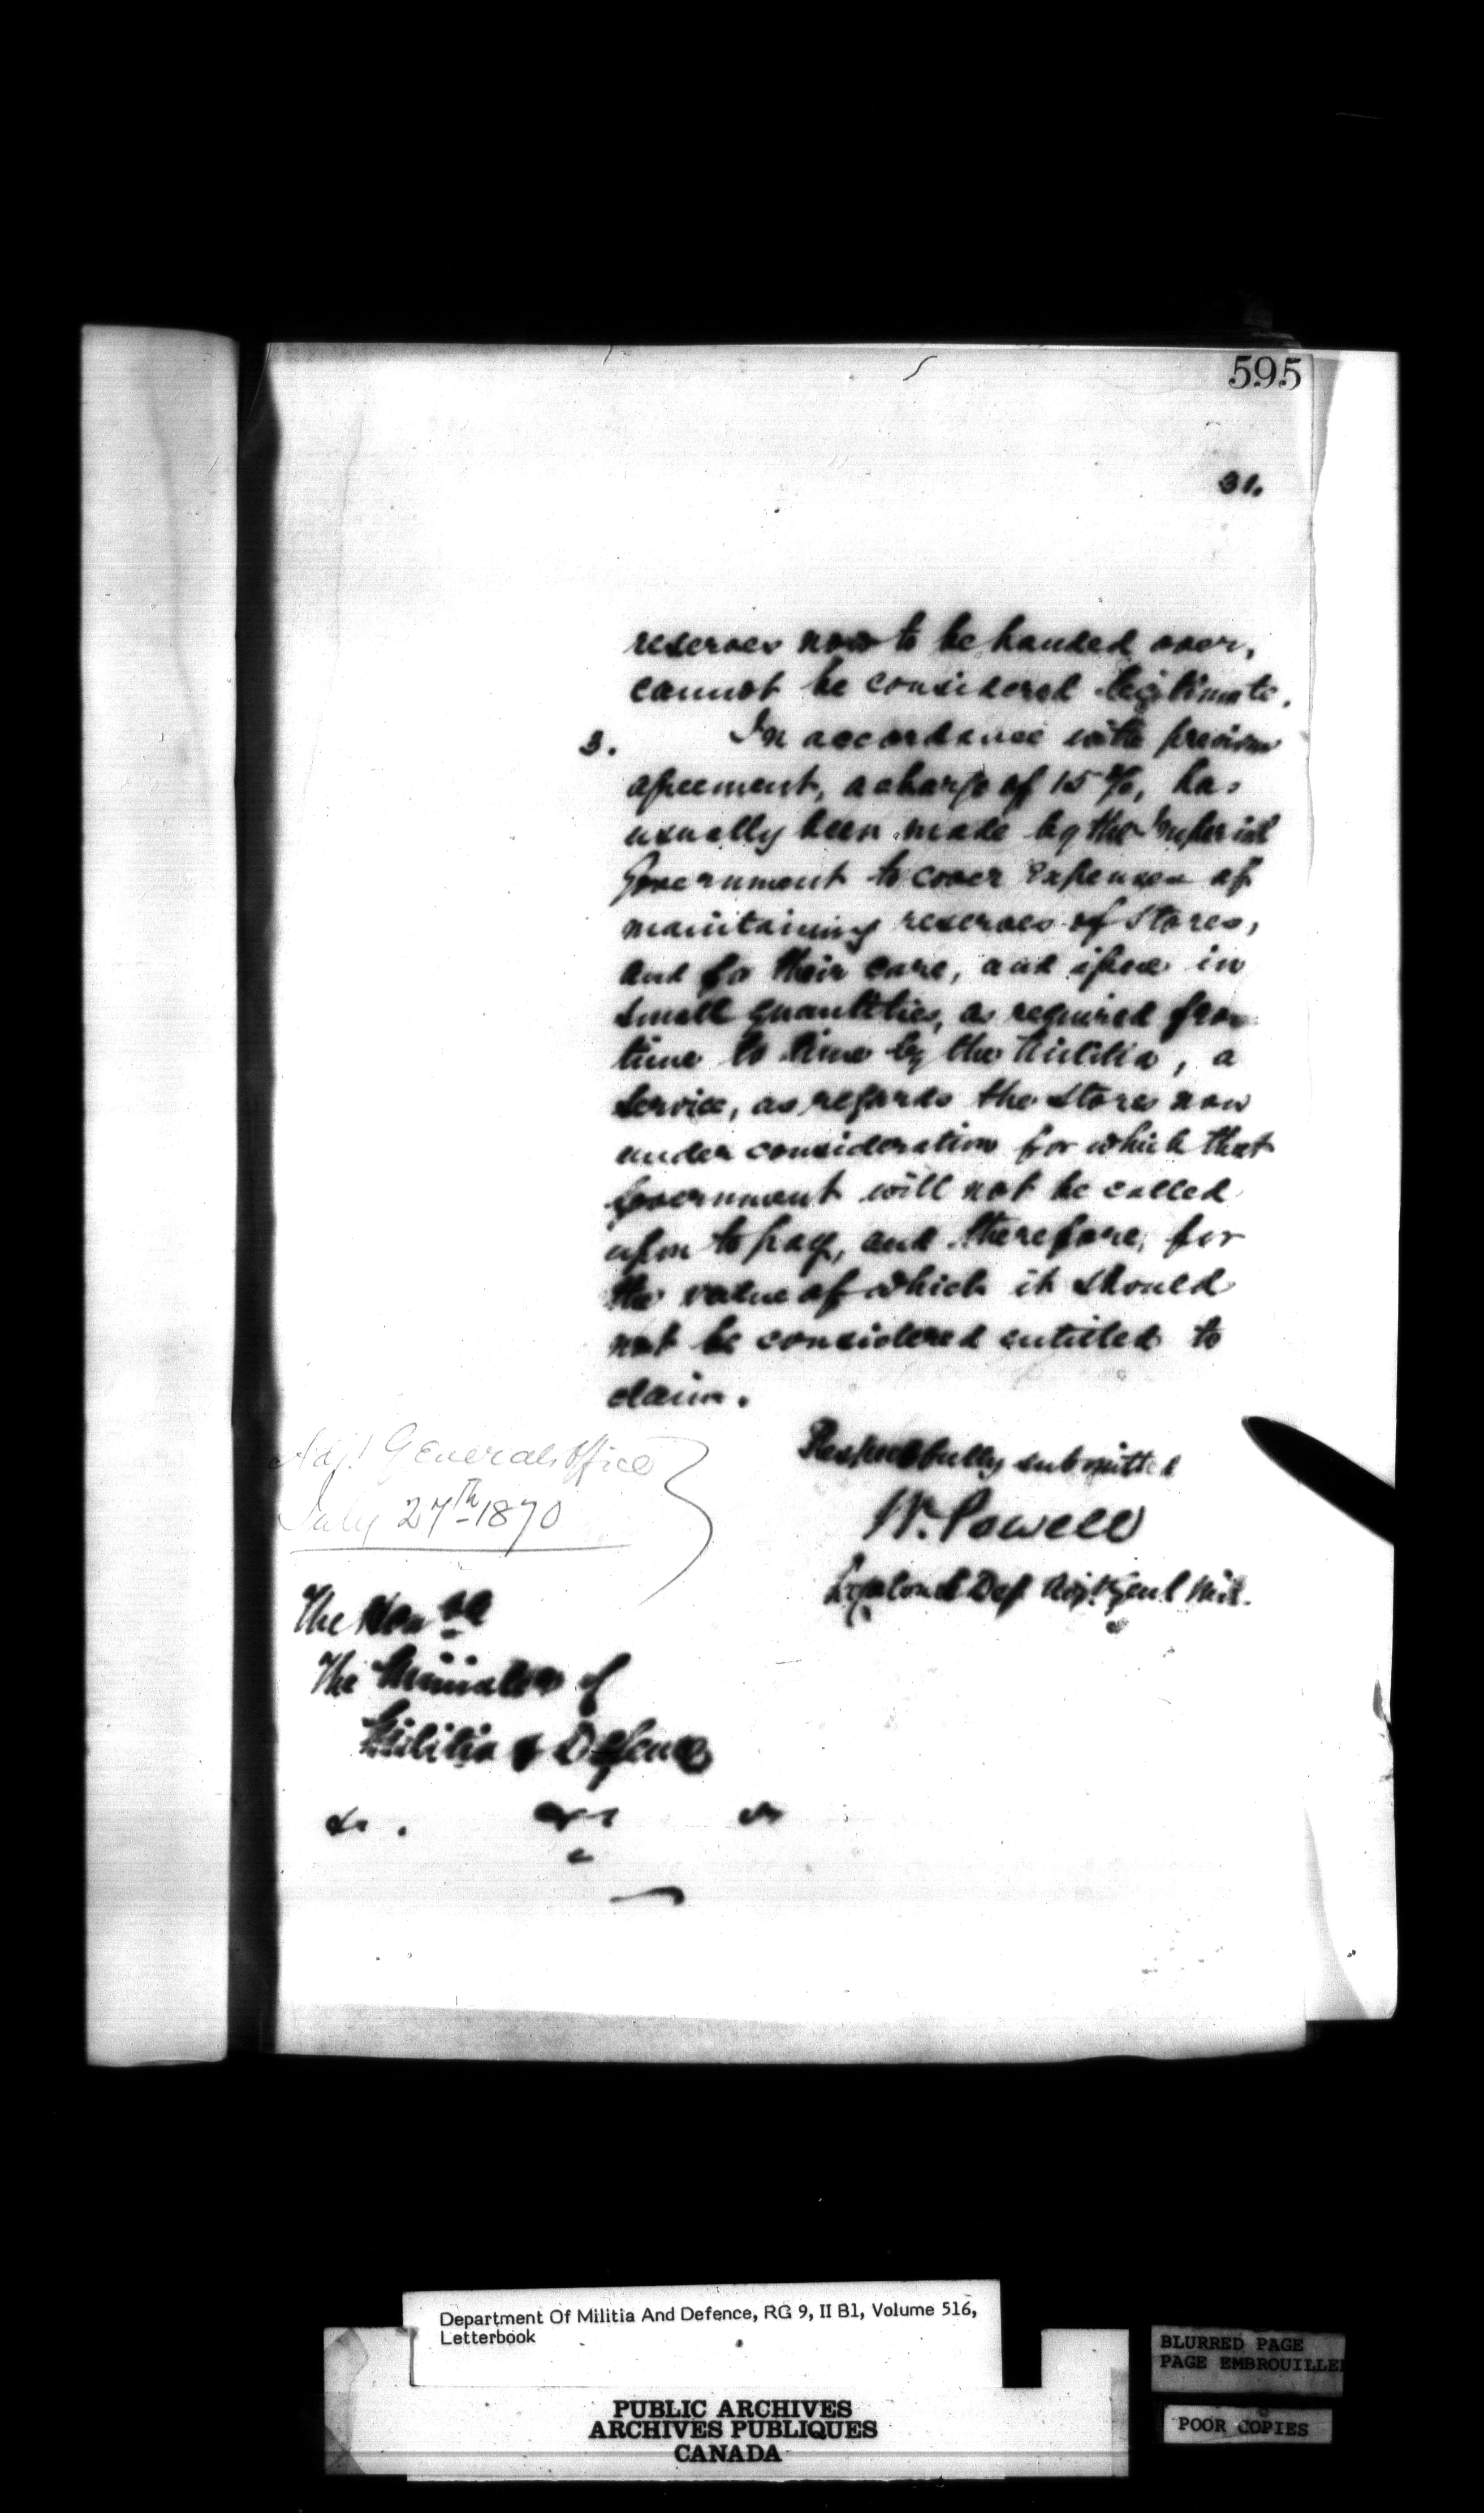 595
31.
reserves now to be handed over,
cannot be considered legitimate.
3. In accordance with previous
agreement, a charge of 15 %, has
usually been made by the Imperial
Government to cover expenses of
maintaining reserves of Stores,
and for their care, and issue in
small quantities, as required from
time to time by the Militia, a
service, as regards the stores now
under consideration for which that
Government will not be called
upon to pay, and therefore, for
the value of which it should
not be considered entitled to
claim.
Respectfully submitted
W. Powell
Dep Adjt Genl Mil.
Adjt Generals Office
July 27th 1870
The Honble
The Minister of
Militia & Defence
&c. &c &c
Department Of Militia And Defence, RG 9, II B1, Volume 516,
Letterbook
PUBLIC ARCHIVES
ARCHIVES PUBLIQUES
CANADA
BLURRED PAGE
PAGE EMBROUILLEE
POOR COPIES